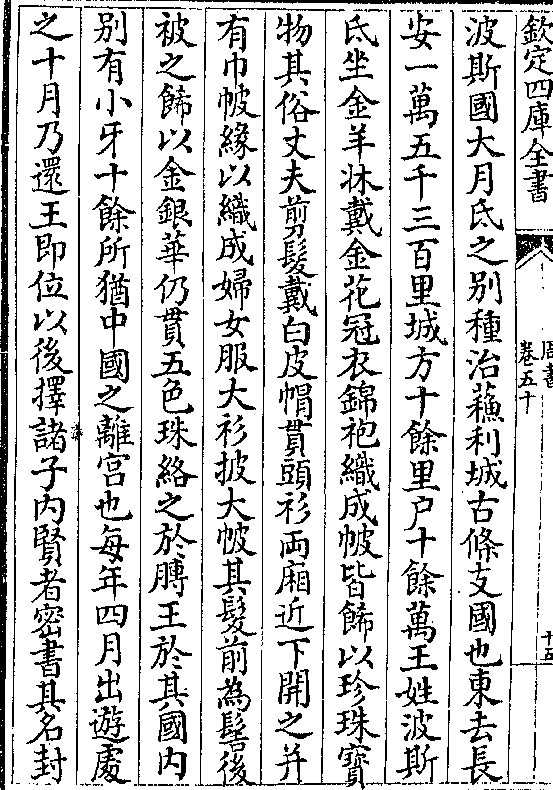 欽定四庫全書
周書
卷五十
十五
波斯國大月氐之别種治蘓利城古條支國也東去長
安一萬五千三百里城方十餘里户十餘萬王姓波斯
氐坐金羊牀戴金花冠衣錦袍織成帔皆飾以珍珠寶
物其俗丈夫剪髮戴白皮帽貫頭衫両廂近下開之并
有巾帔緣以織成婦女服大衫披大帔其髮前為髻後
被之飾以金銀華仍貫五色珠絡之於膊王於其國内
别有小牙十餘所猶中國之離宫也每年四月出遊處
之十月乃還王即位以後擇諸子内賢者密書其名封